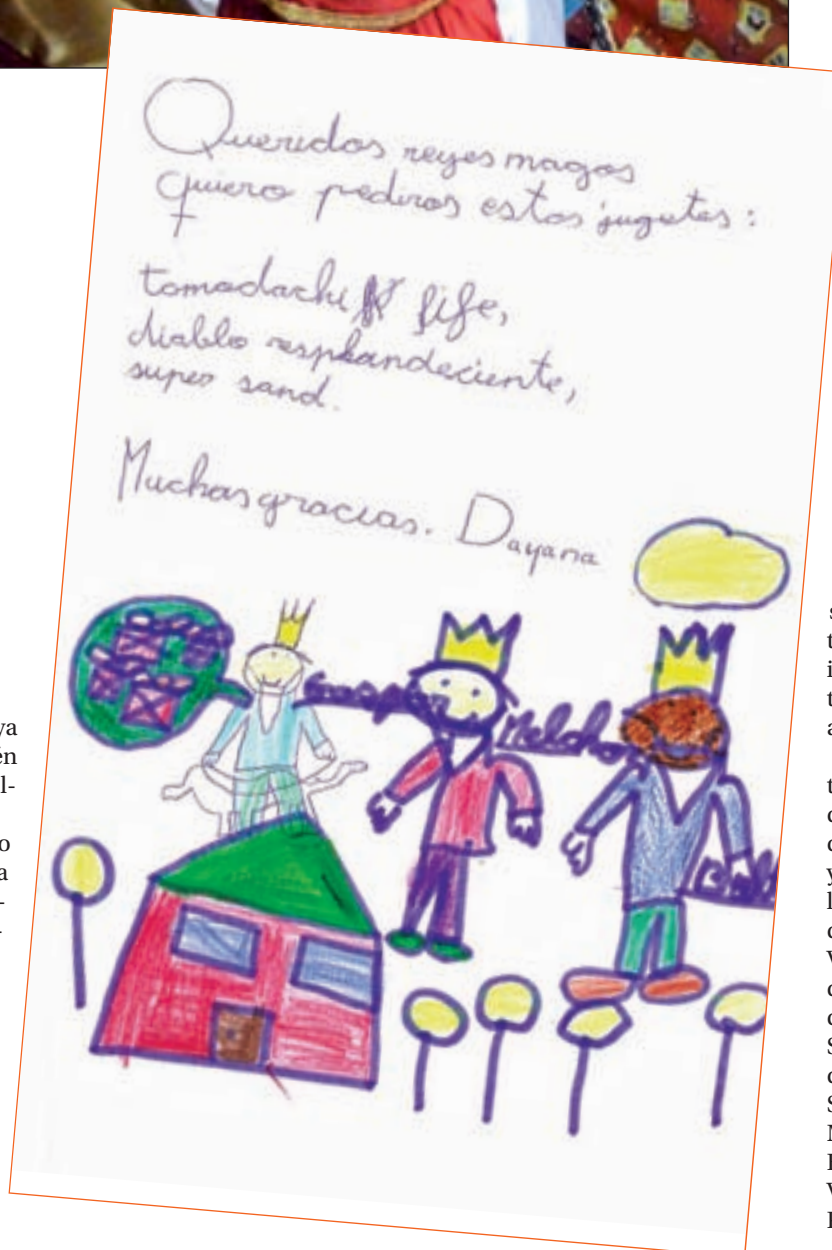 Queridos reyes magos
quiero pediros estos jugetes:
tomodachi life,
diablo resplandeciente,
super sand.
Muchas gracias. Dayana
Gaspar
Melchor
ya
én
l-
o
a
-
s
t
i
t
a
t
c
c
y
l
c
V
c
c
S
c
S
N